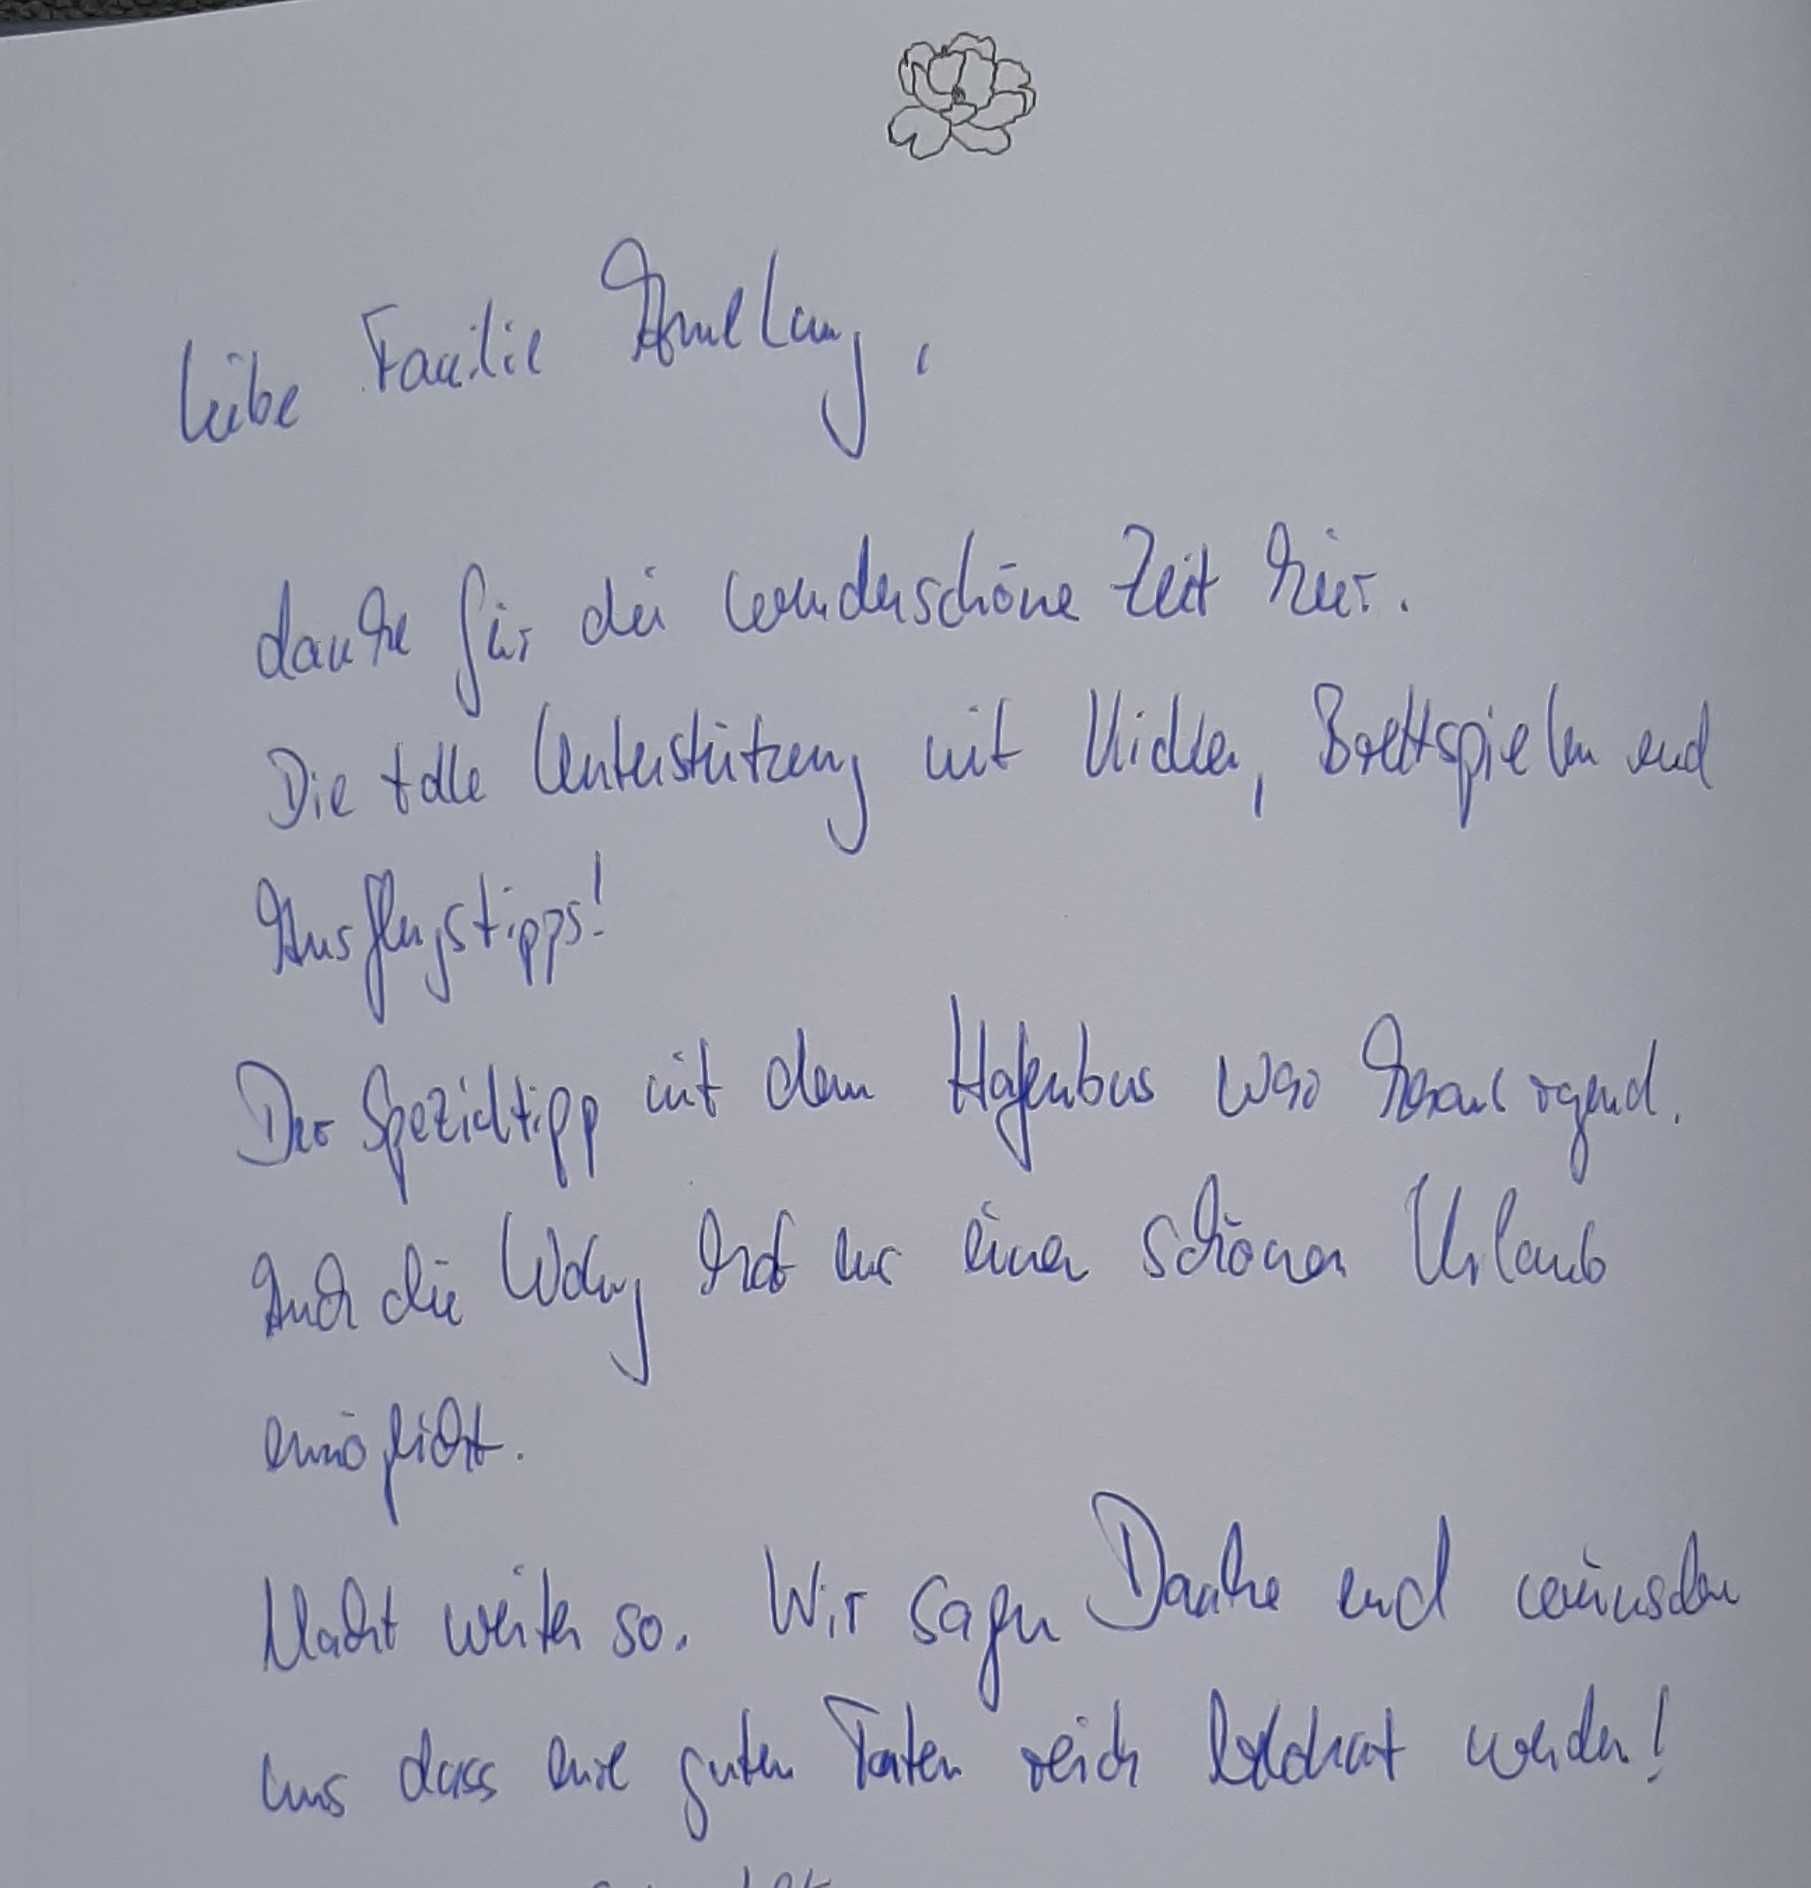 liebe Familie Amelung,
danke für die wunderschöne Zeit hier.
Die tolle Unterstützung mit Kicker, Brettspielen und
Ausflugstipps!
Der Spezialtipp mit dem Hafenbus war herausragend.
Auch die Wohng hat uns einen schönen Urlaub
ermöglicht.
Macht weiter so. Wir sagen Danke und wünschen
uns dass eure guten Taten reich belohnt werden!